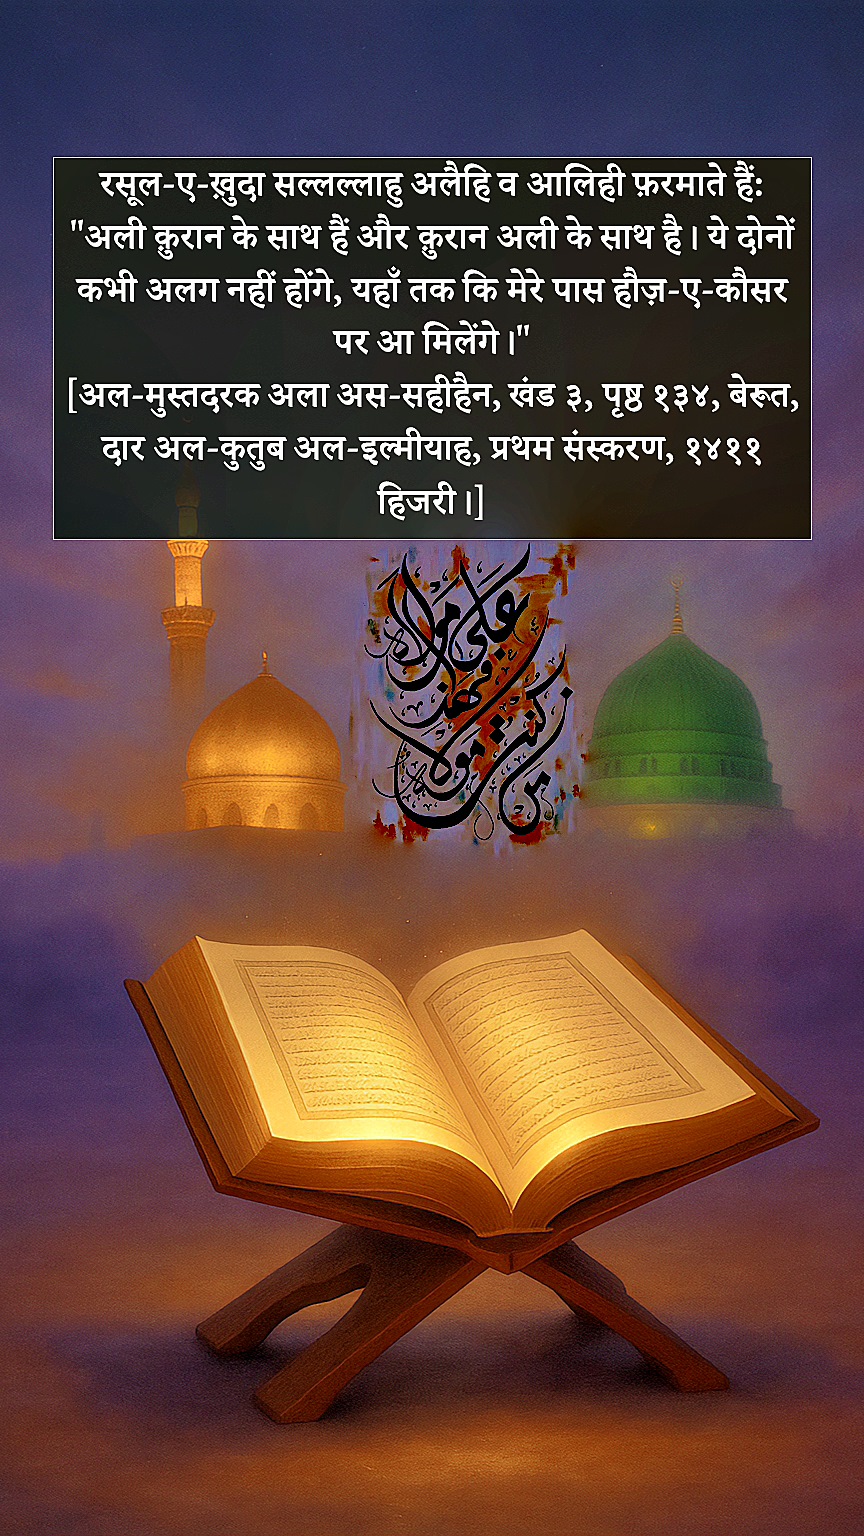 रसूल-ए-ख़ुदा सल्लल्लाहु अलैहि व आलिही फ़रमाते हैं:
"अली क़ुरान के साथ हैं और क़ुरान अली के साथ है। ये दोनों
कभी अलग नहीं होंगे, यहाँ तक कि मेरे पास हौज़-ए-कौसर
पर आ मिलेंगे।"
[अल-मुस्तदरक अला अस-सहीहैन, खंड ३, पृष्ठ १३४, बेरूत,
दार अल-कुतुब अल-इल्मीयाह, प्रथम संस्करण, १४११
हिजरी।]
من كنت مولاه
فهذا
علي مولاه